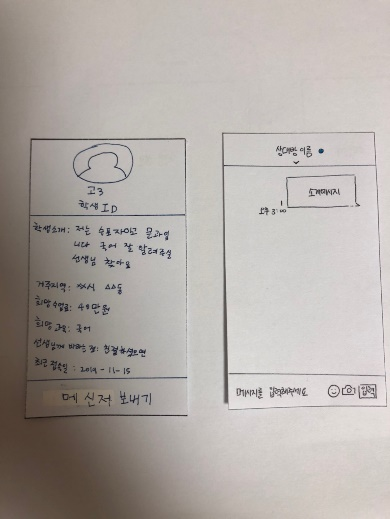 고3
학생 ID
학생소개: 저는 수포자이고 문과입
니다 국어 잘 알려주실
선생님 찾아요
거주지역: XX시 △△동
희망수업료: 40만원
희망 과목: 국어
선생님께 바라는점: 친절하셨으면
최근 접속일: 2019-11-15
메신저 보내기
상대방 이름
소개메시지
오후 3:00
메시지를 입력해주세요
입력